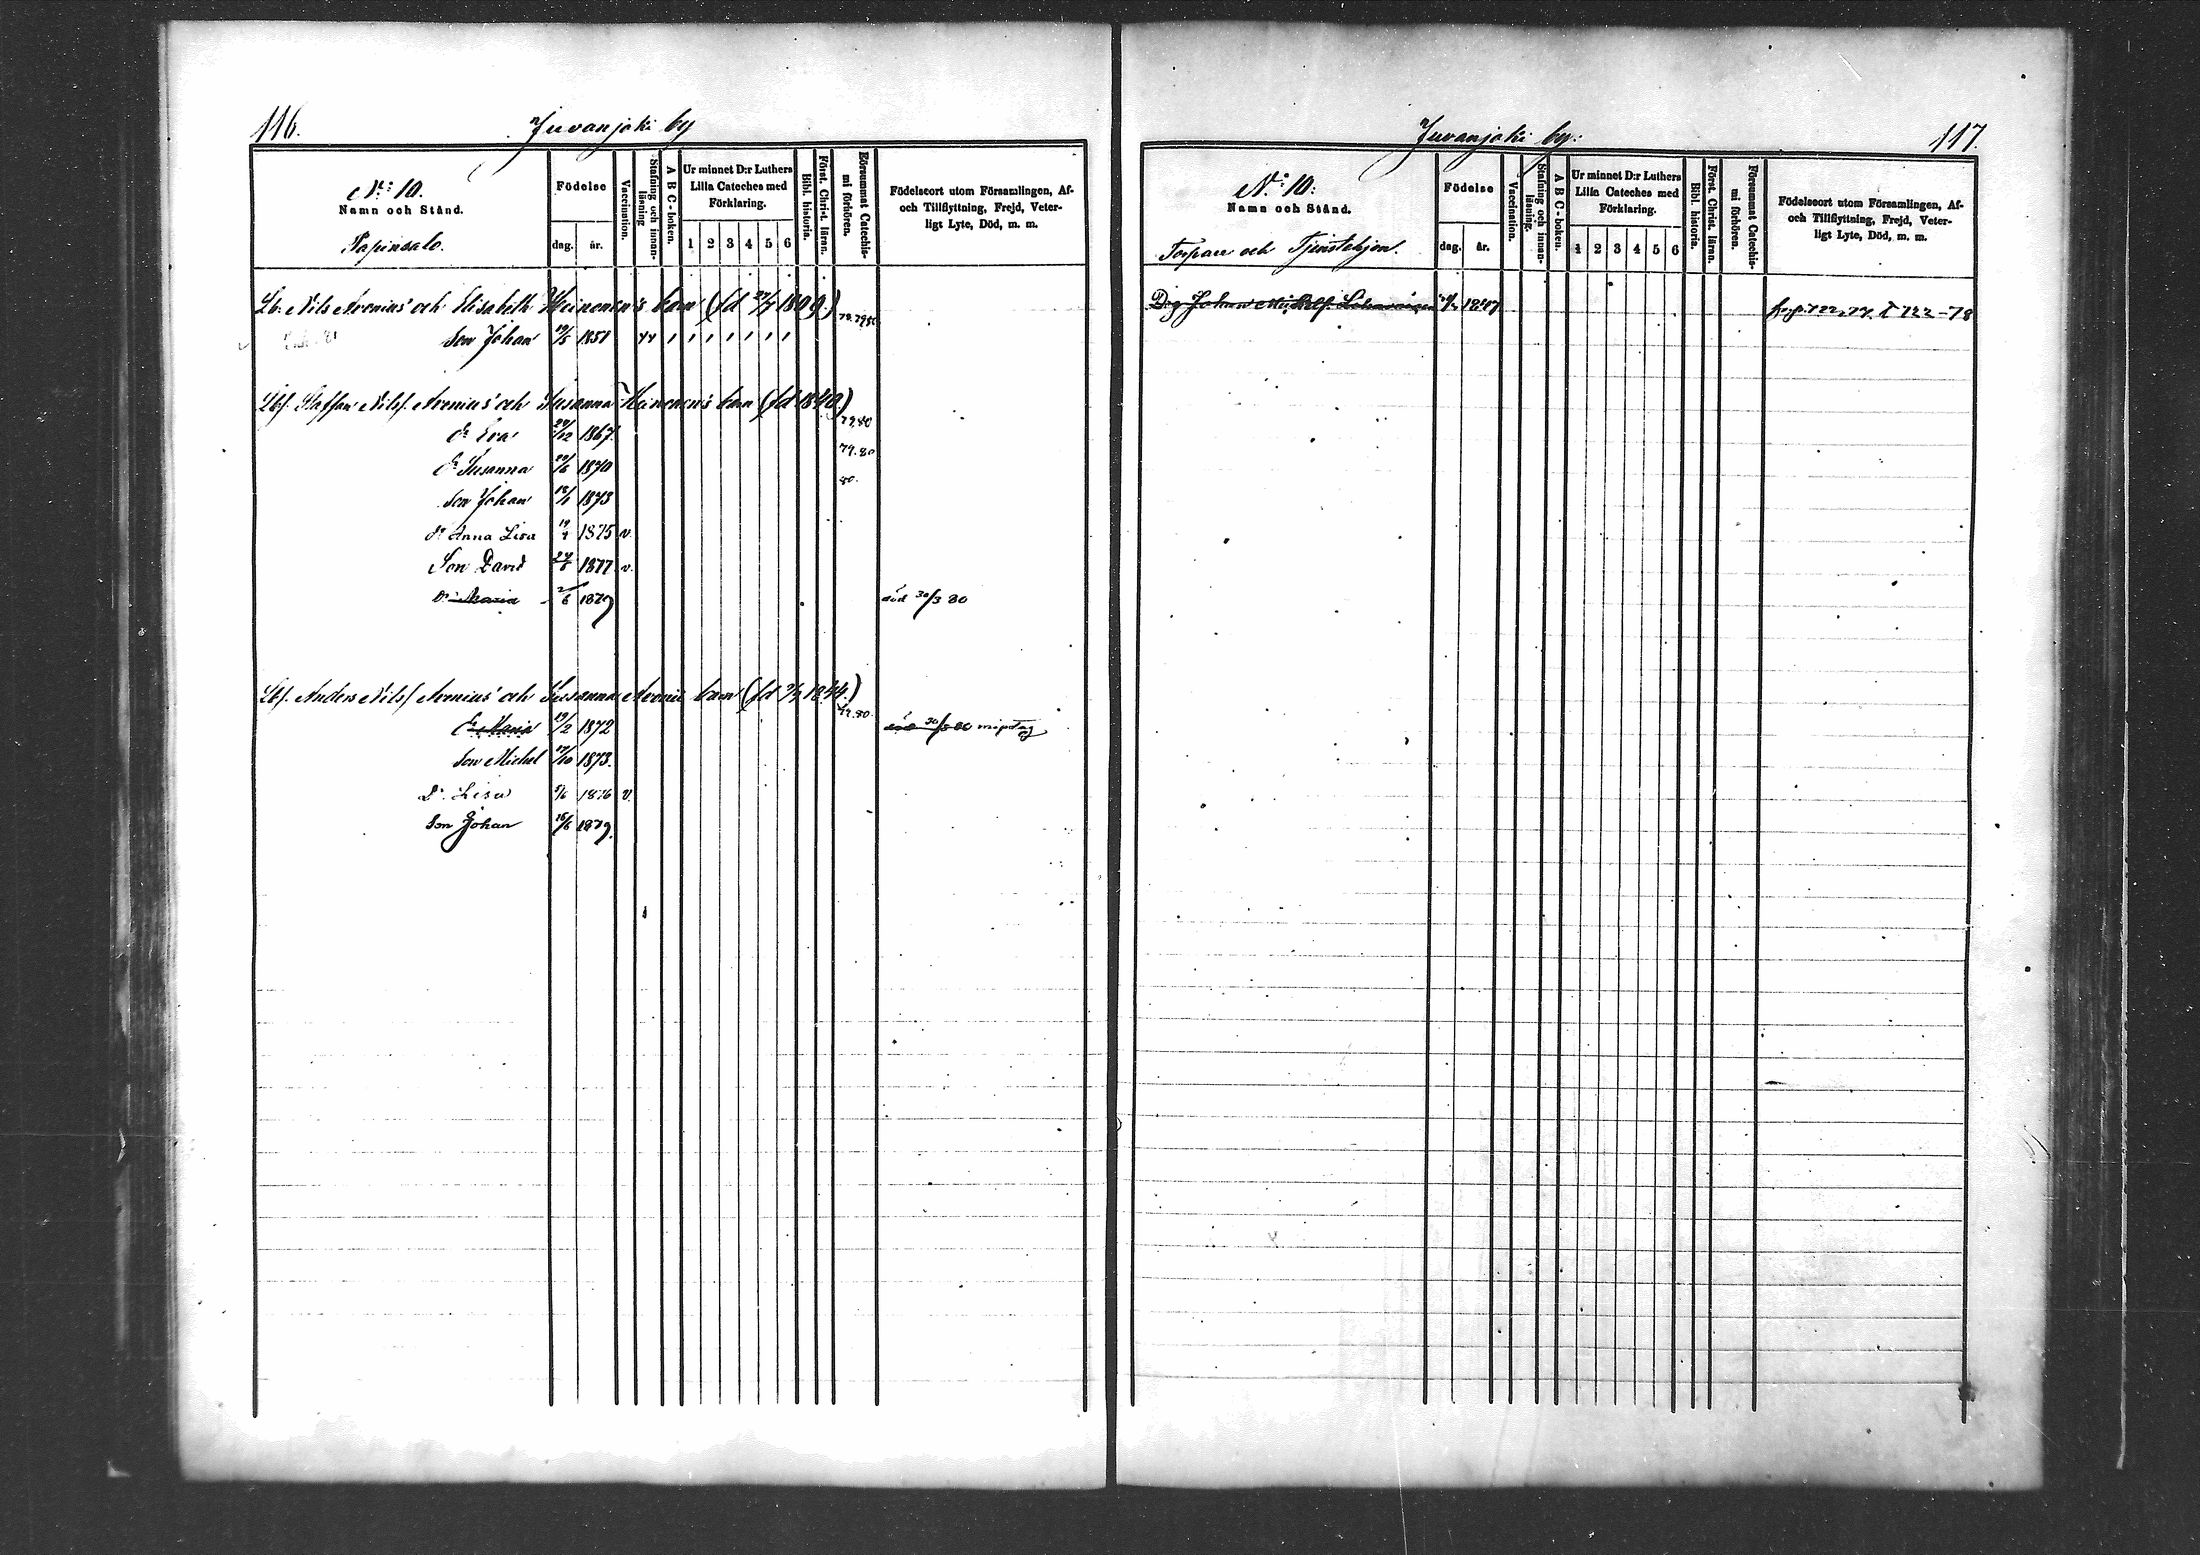 116.
Juvanjoki by
N:o 10.
Namn och Stånd.
Papinsalo.
Födelse
dag.
år.
Vaccination.
Stafning och innan-
läsning
A B C - boken.
Ur minnet D:r Luthers
Lilla Cateches med
Förklaring.
1 2 3 4 5 6
Bibl. historia.
Först. Christ. läran.
Försummat Catechis-
mi förhören.
Födelseort utom Församlingen, Af-
och Tillflyttning, Frejd, Veter-
ligt Lyte, Död, m. m.
Lb. Nils Aronius' och Elisabeth Heinonen's barn (fd 27/7 1809.) 78.79.80
Son Johan 19/5 1851
Lbf. Staffan Nilsf. Aronius' och Susanna Heinonen's barn (fd. 1840) 79.80
dr Eva 24/12 1867. 79.80
dr Susanna 20/6 1870 80.
Son Johan 18/1 1873
dr Anna Lisa 19/4 1875 v.
Son David 1877 v.
Dr Maria 2/6 1879 död 30/3 80
Lbf. Anders Nilsf Aronius' och Susanna Aronii barn (fd 1844.) 79.80.
dr Maria 19/2 1872 död 30/3 80 misstag
Son Michel 17/10 1873.
Dr. Lisa 5/6 1876 v.
Son Johan 16/6 1879.
Juvanjoki by:
117.
N:o 10:
Namn och Stånd.
Torpare och Tjenstehjon.
Födelse
dag.
år.
Vaccination.
Stafning och innan-
läsning.
A B C - boken.
Ur minnet D:r Luthers
Lilla Cateches med
Förklaring.
1 2 3 4 5 6
Bibl. historia.
Först. Christ. läran.
Försummat Catechis-
mi förhören.
Födelseort utom Församlingen, Af-
och Tillflyttning, Frejd, Veter-
ligt Lyte, Död, m. m.
Drg Johan 1847 122 T 122-78